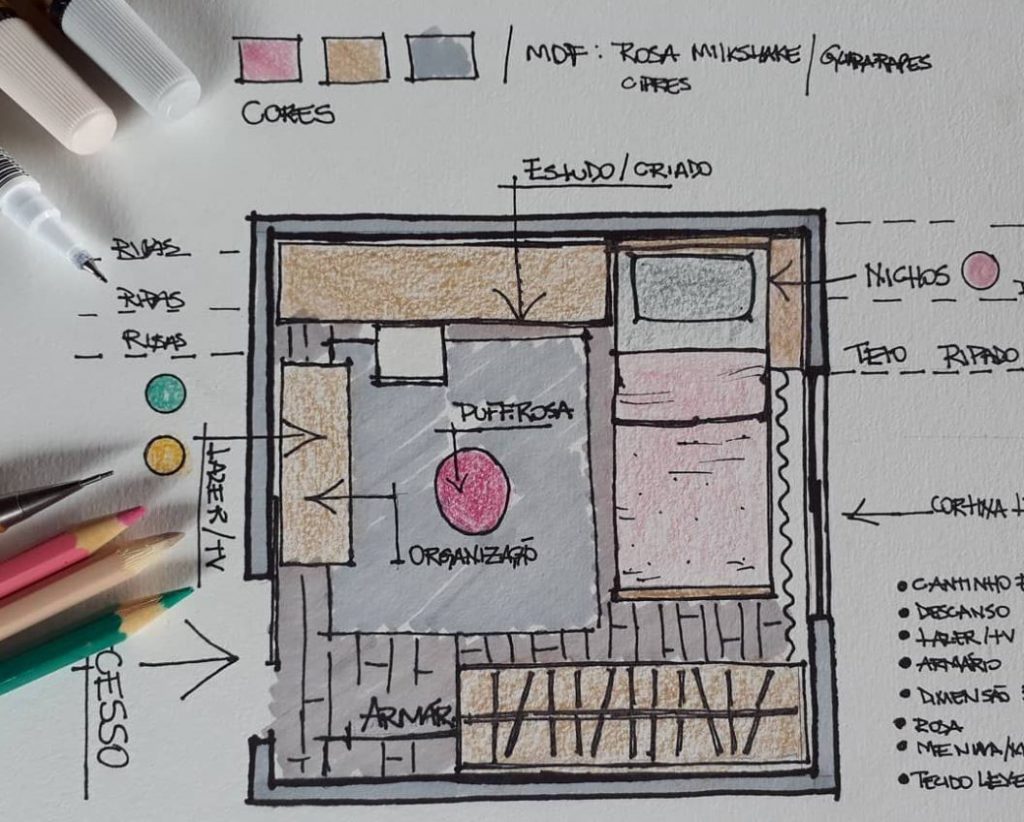 CORES
MDF: ROSA MILKSHAKE / GUARARAPES
CIPRES
ESTUDO/CRIADO
RIPAS
RIPAS
RIPAS
NICHOS
TETO RIPADO
PUFF ROSA
LAZER/TV
ORGANIZAÇÃO
CORTINA
ACESSO
ARMÁR.
• CANTINHO
• DESCANSO
• LAZER/TV
• ARMÁRIO
• DIMENSÃO
• ROSA
• MENINA/
• TECIDO LEVE